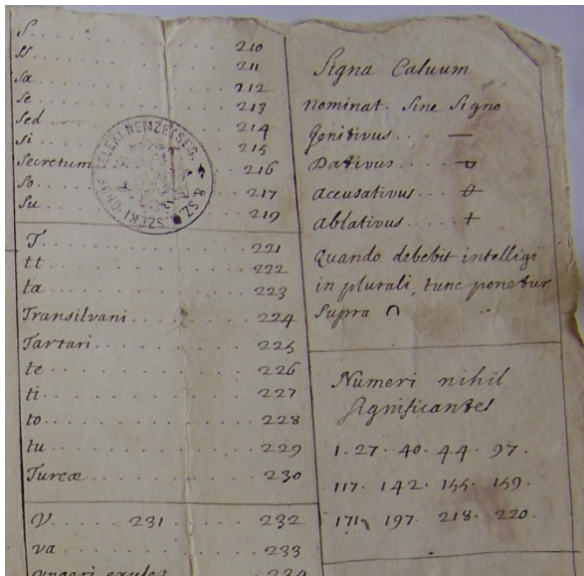 S. . . . . . . . 210
ss . . . . . . . 211
sa . . . . . . . 212
se . . . . . . . 213
sed . . . . . . . 214
si . . . . . . . 215
Secretum . . . . 216
so . . . . . . . 217
su . . . . . . . 219
T. . . . . . . . 221
tt . . . . . . . 222
ta . . . . . . . 223
Transilvani . . . . 224
Tartari . . . . . 225
te . . . . . . . 226
ti . . . . . . . 227
to . . . . . . . 228
tu . . . . . . . 229
Turcæ . . . . . 230
V . . . . 231 . . . . 232
va . . . . . . . 233
ungari exules . . . 234
Signa Casuum
nominat. Sine Signo
Genitivus . . . —
Dativus
accusativus
ablativus . . . . +
Quando debebit intelligi
in plurali, tunc ponetur
supra ∩
Numeri nihil
significantes
1. 27. 40. 44. 97.
117. 142. 155. 159.
171. 197. 218. 220.
NEMZETSÉG